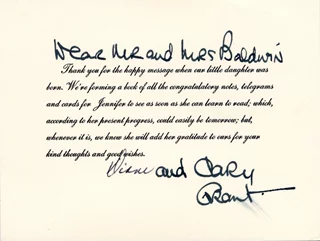 Dear Mr and Mrs Baldwin
Thank you for the happy message when our little daughter was
born. We're forming a book of all the congratulatory notes, telegrams
and cards for Jennifer to see as soon as she can learn to read; which,
according to her present progress, could easily be tomorrow; but,
whenever it is, we know she will add her gratitude to ours for your
kind thoughts and good wishes.
Diane and Cary
Grant.